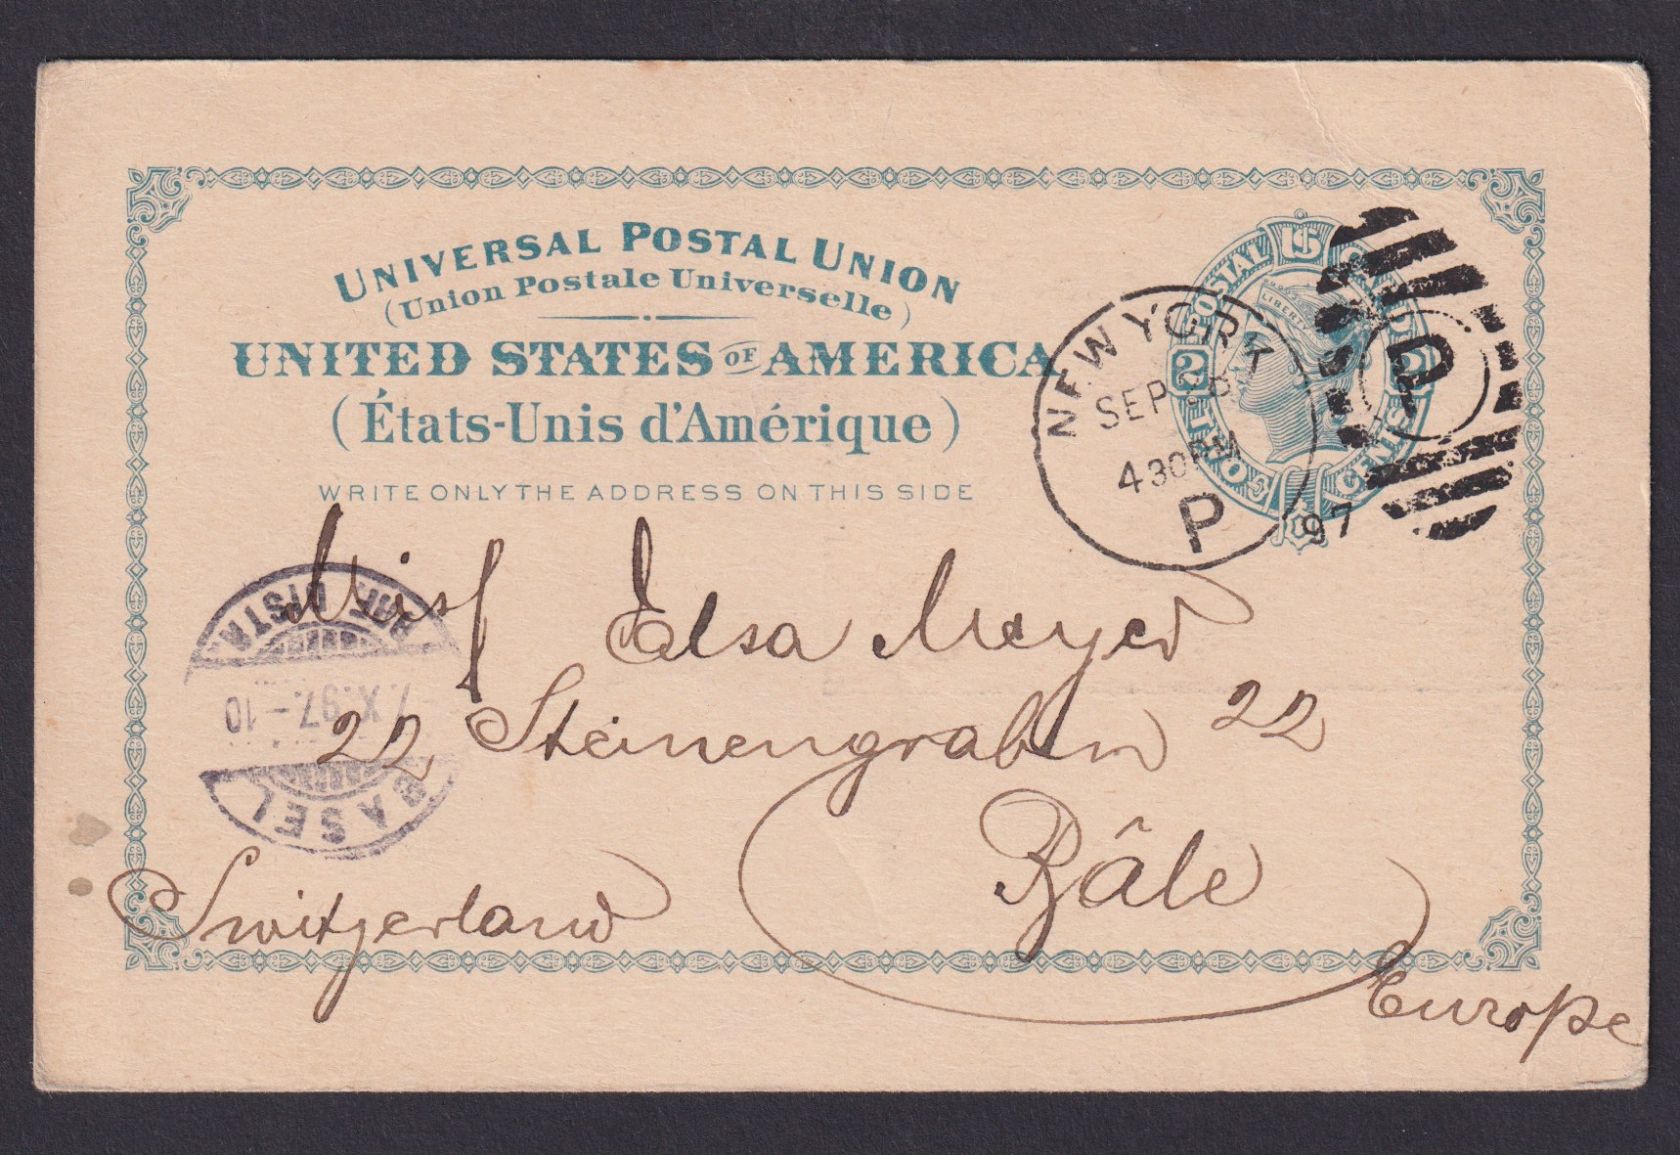 UNIVERSAL POSTAL UNION
(Union Postale Universelle)
UNITED STATES OF AMERICA
(États-Unis d'Amérique)
WRITE ONLY THE ADDRESS ON THIS SIDE
POSTAL CARD
LIBERTY
2
TWO CENTS
NEW YORK
SEP
430PM
P
97
P
Miss Elsa Meyer
22 Steinengraben 22
Bâle
Switzerland
Europe
BASEL
X.97.-10